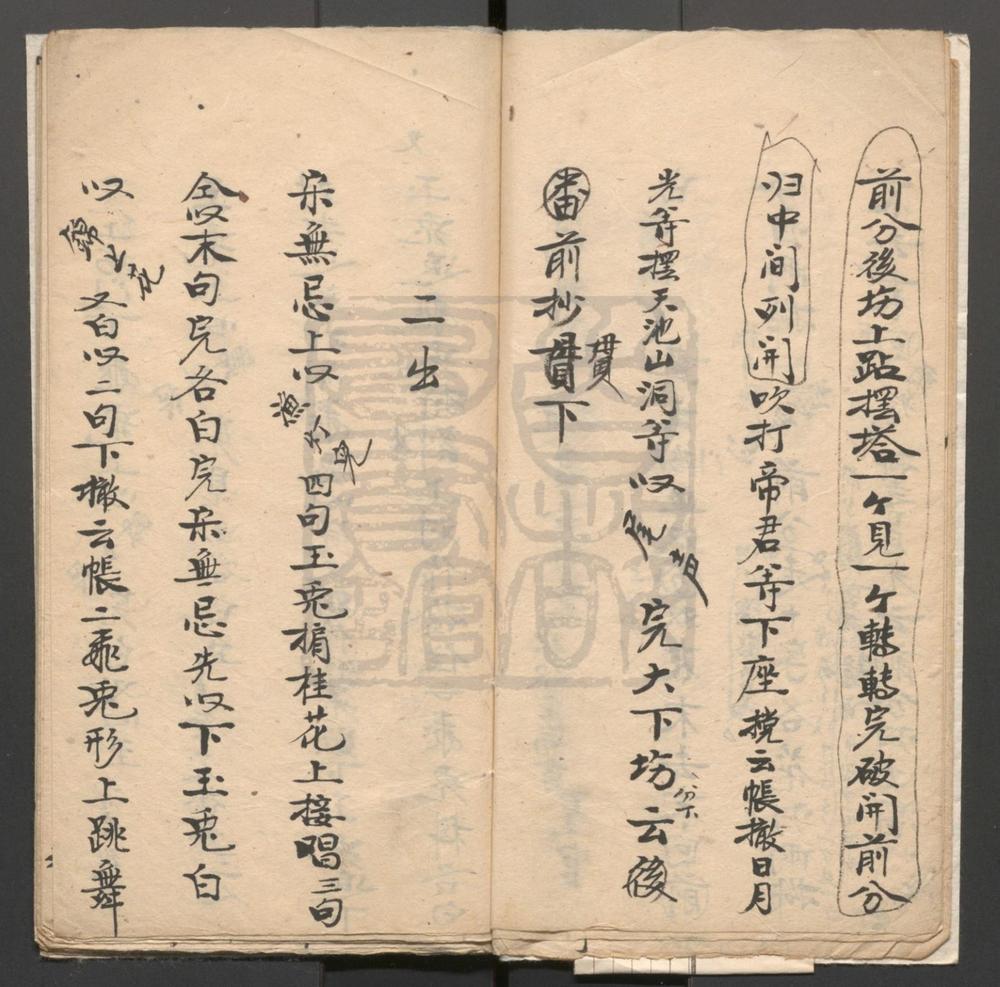 前分後場上跕擺塔一ケ見一ケ轉轉完破開前分
归中间列開吹打帝君等下座挽云帳撤日月
光等擺天池山洞等以尾声完大下場分下云後
番前抄貫下
二出
朵無忌上以四句玉兎掮桂花上接唱三句
合以末句完各白完朵無忌先以下玉兎白
以又白以二句下撤云帳二飛兎形上跳舞